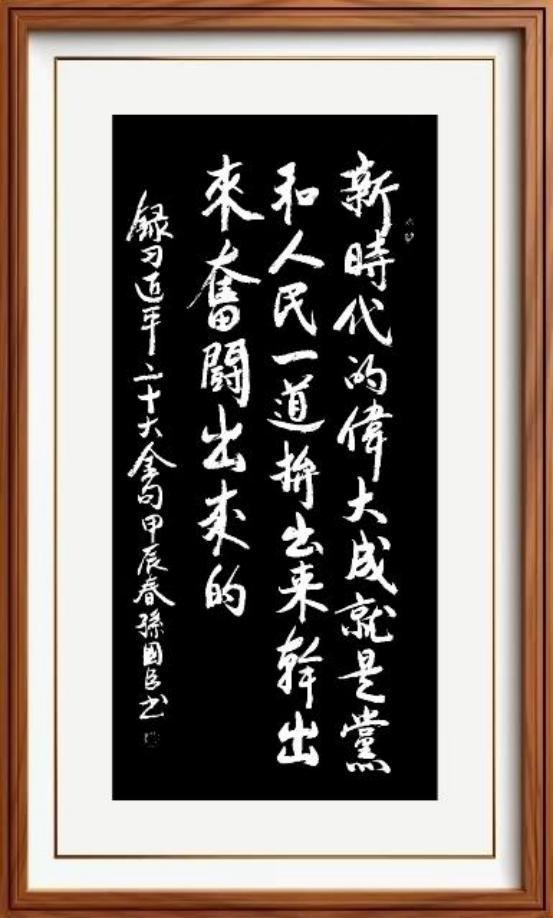 新時代的偉大成就是黨
和人民一道拚出来幹出
來奮闘出来的
録习近平二十大金句甲辰春孫國臣书